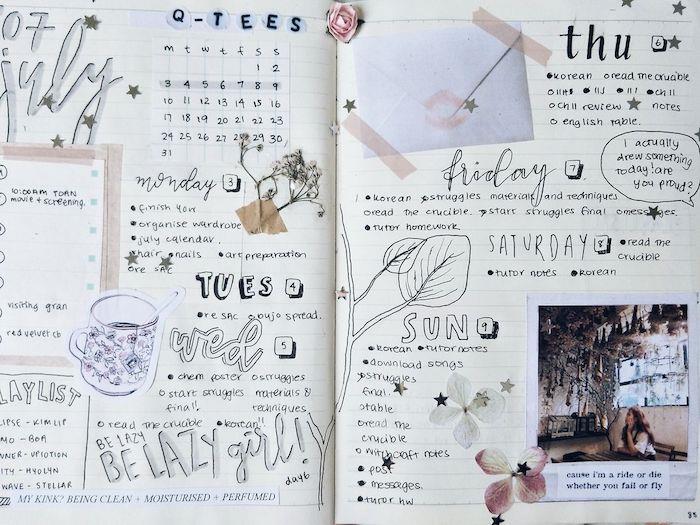 07
july
Q-TEES
m t w t f s s
1 2
3 4 5 6 7 8 9
10 11 12 13 14 15 16
17 18 19 20 21 22 23
24 25 26 27 28 29 30
31
10:00AM TOAN
movie + screening.
visiting gran
red velvet cb
monday 3
finish 4011
organise wardrobe
july calendar.
hair nails art preparation
ore sac
TUES 4
ore sac bujo spread.
wed 5
chem poster struggles
start struggles materials &
final! techniques
read the crucible korean!!
LAYLIST
LIPSE - KIM LIP
MO - BOA
NNER - UPIOTION
ITY - HYOLYN
WAVE - STELLAR
BE LAZY
BE LAZY girl!
day 6
MY KINK? BEING CLEAN + MOISTURISED + PERFUMED
thu 6
korean read the crucible
ch 11
ch 11 review notes
english table.
I actually
drew something
today! are
you proud?
friday 7
korean struggles materials and techniques
read the crucible. start struggles final messages.
tutor homework
SATURDAY 8 read the
crucible
tutor notes korean
SUN 9
korean tutor notes
download songs
struggles
final.
table
read the
crucible
witchcraft notes
post
messages.
tutor hw
cause i'm a ride or die
whether you fail or fly